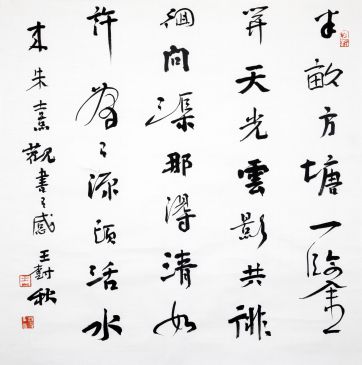 半畝方塘一鑒
開天光雲影共徘
徊問渠那得清如
許為有源頭活水
來 朱熹觀書有感 王 秋